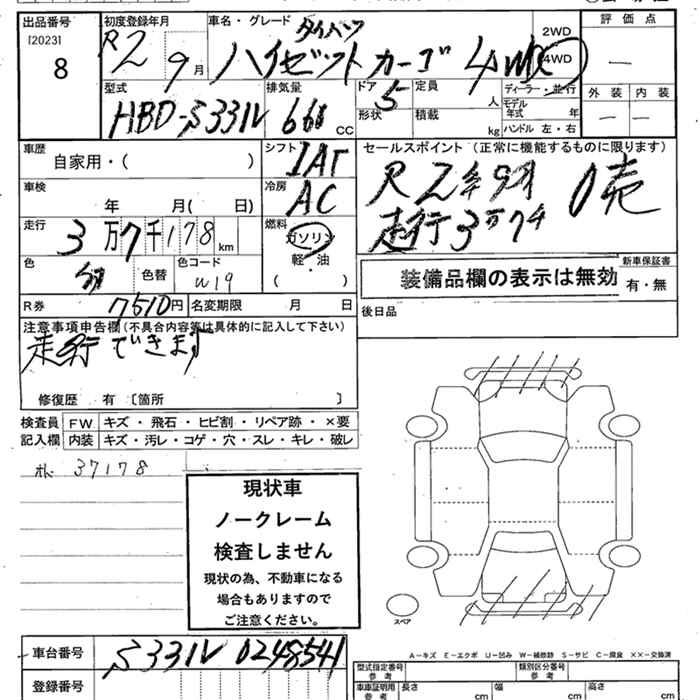 出品番号 初度登録年月 車名・グレード ダイハツ 2WD 評価点
[2023] R2 9月 ハイゼットカーゴ 4WD 4WD —
8
型式 排気量 ドア 5 定員 人 ディーラー・並行 外装 内装
HBD-S331V 660 CC 形状 積載 kg モデル年式 年 — —
ハンドル 左・右
車歴 自家用・( ) シフト IAT セールスポイント(正常に機能するものに限ります)
車検 年 月( 日) 冷房 AC R2年9月 0売
走行 3万7千178km 燃料 ガソリン 走行3万7千
軽・油
( )
色 色替 色コード W19 装備品欄の表示は無効 新車保証書
有・無
R券 7510円 名変期限 月 日 後日品
注意事項申告欄(不具合内容等は具体的に記入して下さい)
走行できます
修復歴 有 〔箇所 〕
検査員 FW キズ・飛石・ヒビ割・リペア跡・×要
記入欄 内装 キズ・汚レ・コゲ・穴・スレ・キレ・破レ
37178
現状車
ノークレーム
検査しません
現状の為、不動車になる
場合もありますので
ご注意ください。
スペア
A-キズ E-エクボ U-凹み W-補修跡 S-サビ C-腐食 XX-交換済
車台番号 S331V 0248541 型式指定番号 類別区分番号
登録番号 車庫証明用 参考 長さ cm 幅 cm 高さ cm